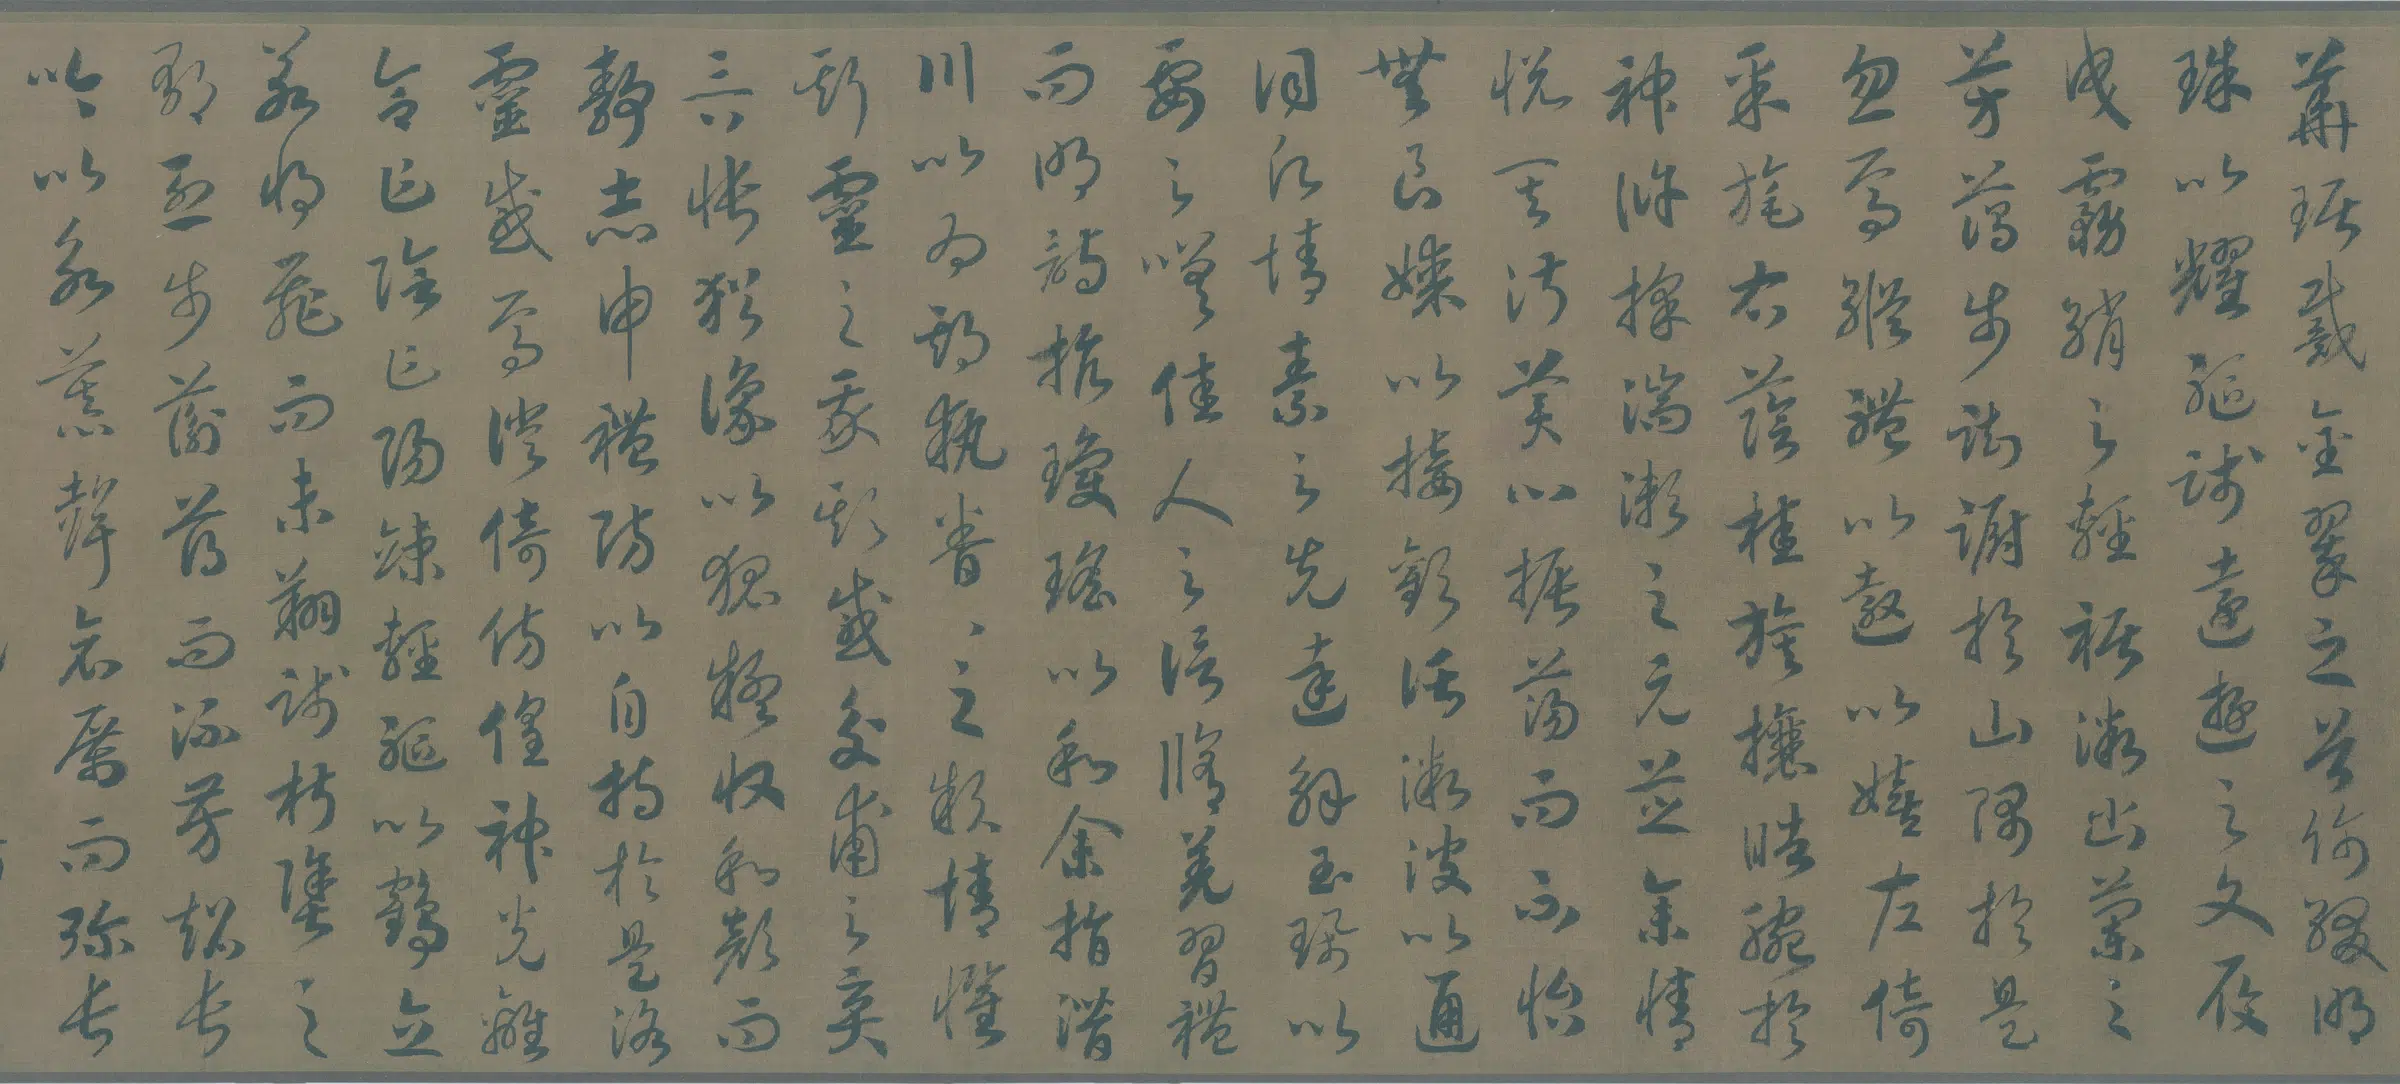 華琚戴金翠之首飾綴明
珠以耀軀踐遠遊之文履
曳霧綃之輕裾微幽蘭之
芳藹步踟躕於山隅於是
忽焉縱體以遨以嬉左倚
采旄右蔭桂旗攘皓腕於
神滸採湍瀨之元芝余情
悅其淑美心振蕩而不怡
無良媒以接歡託微波以通
詞願情素之先達解玉珮以
要之嗟佳人之信脩羌習禮
而明詩抗瓊瑤以和余指潛
川以為期執眷〻之款情懼
斯靈之我欺感交甫之棄
言悵猶豫以狐疑收和顏而
靜志申禮防以自持於是洛
靈感焉徙倚傍偟神光離
合乍陰乍陽竦輕軀以鶴立
若將飛而未翔踐椒塗之
郁烈步蘅薄而流芳超長
吟以永慕聲哀厲而彌長